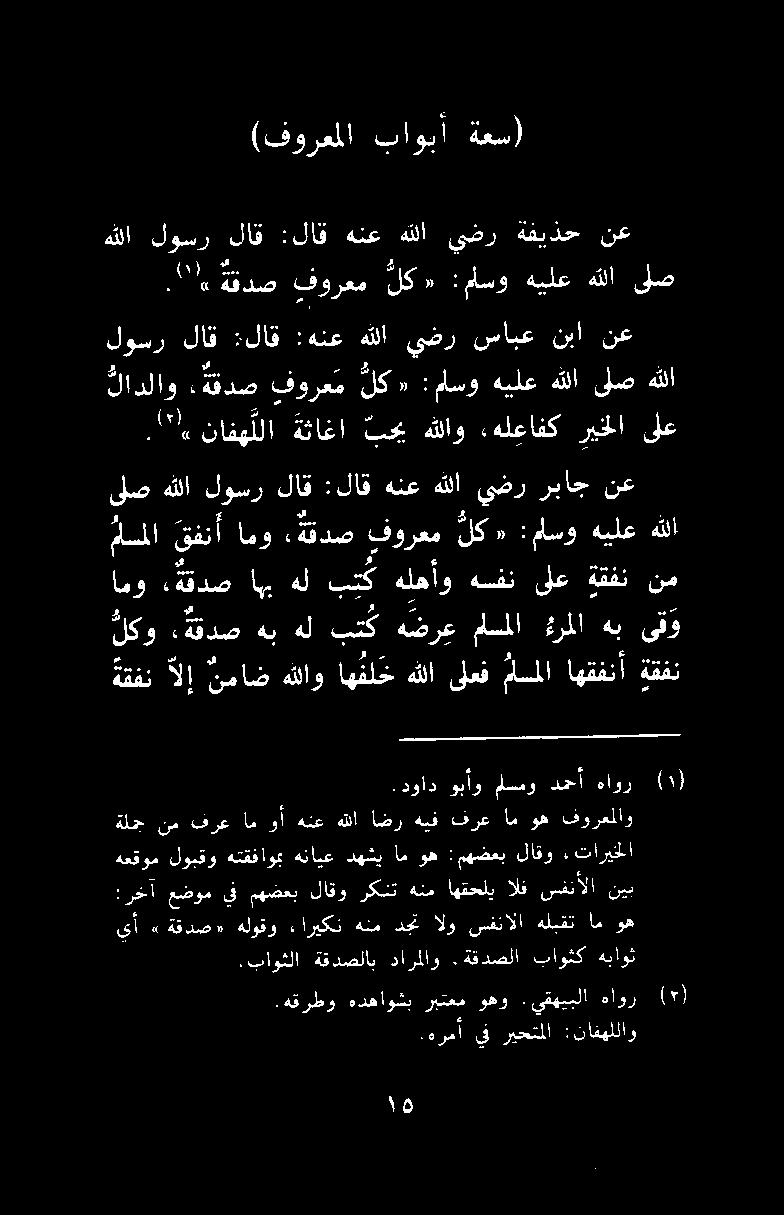 (سعة أبواب المعروف)
عن حذيفة رضي الله عنه قال: قال رسول الله
صلى الله عليه وسلم: «كلُّ معروفٍ صدقةٌ»(١).
عن ابن عباس رضي الله عنه: قال: قال رسول
الله صلى الله عليه وسلم: «كلُّ مَعروفٍ صدقةٌ، والدالُّ
على الخيرِ كفاعِله، والله يحبّ اغاثةَ اللَّهفان»(٢).
عن جابر رضي الله عنه قال: قال رسول الله صلى
الله عليه وسلم: «كلُّ معروفٍ صدقةٌ، وما أنفقَ المسلمُ
من نفقةٍ على نفسه وأهلِه كُتِب له بها صدقةٌ، وما
وَقى به المرءُ المسلم عِرضَه كُتب له به صدقةٌ، وكلُّ
نفقةٍ أنفقها المسلمُ فعلى الله خَلَفُها والله ضامنٌ إلاّ نفقةً
(١) رواه أحمد ومسلم وأبو داود.
والمعروف هو ما عرف فيه رضا الله عنه أو ما عرف من جملة
الخيرات، وقال بعضهم: هو ما يشهد عيانه بموافقته وقبول موقعه
بين الأنفس فلا يلحقها منه تنكر وقال بعضهم في موضع آخر:
هو ما تقبله الانفس ولا تجد منه نكيرا، وقوله «صدقة» أي
ثوابه كثواب الصدقة. والمراد بالصدقة الثواب.
(٢) رواه البيهقي. وهو معتبر بشواهده وطرقه.
واللهفان: المتحير في أمره.
١٥